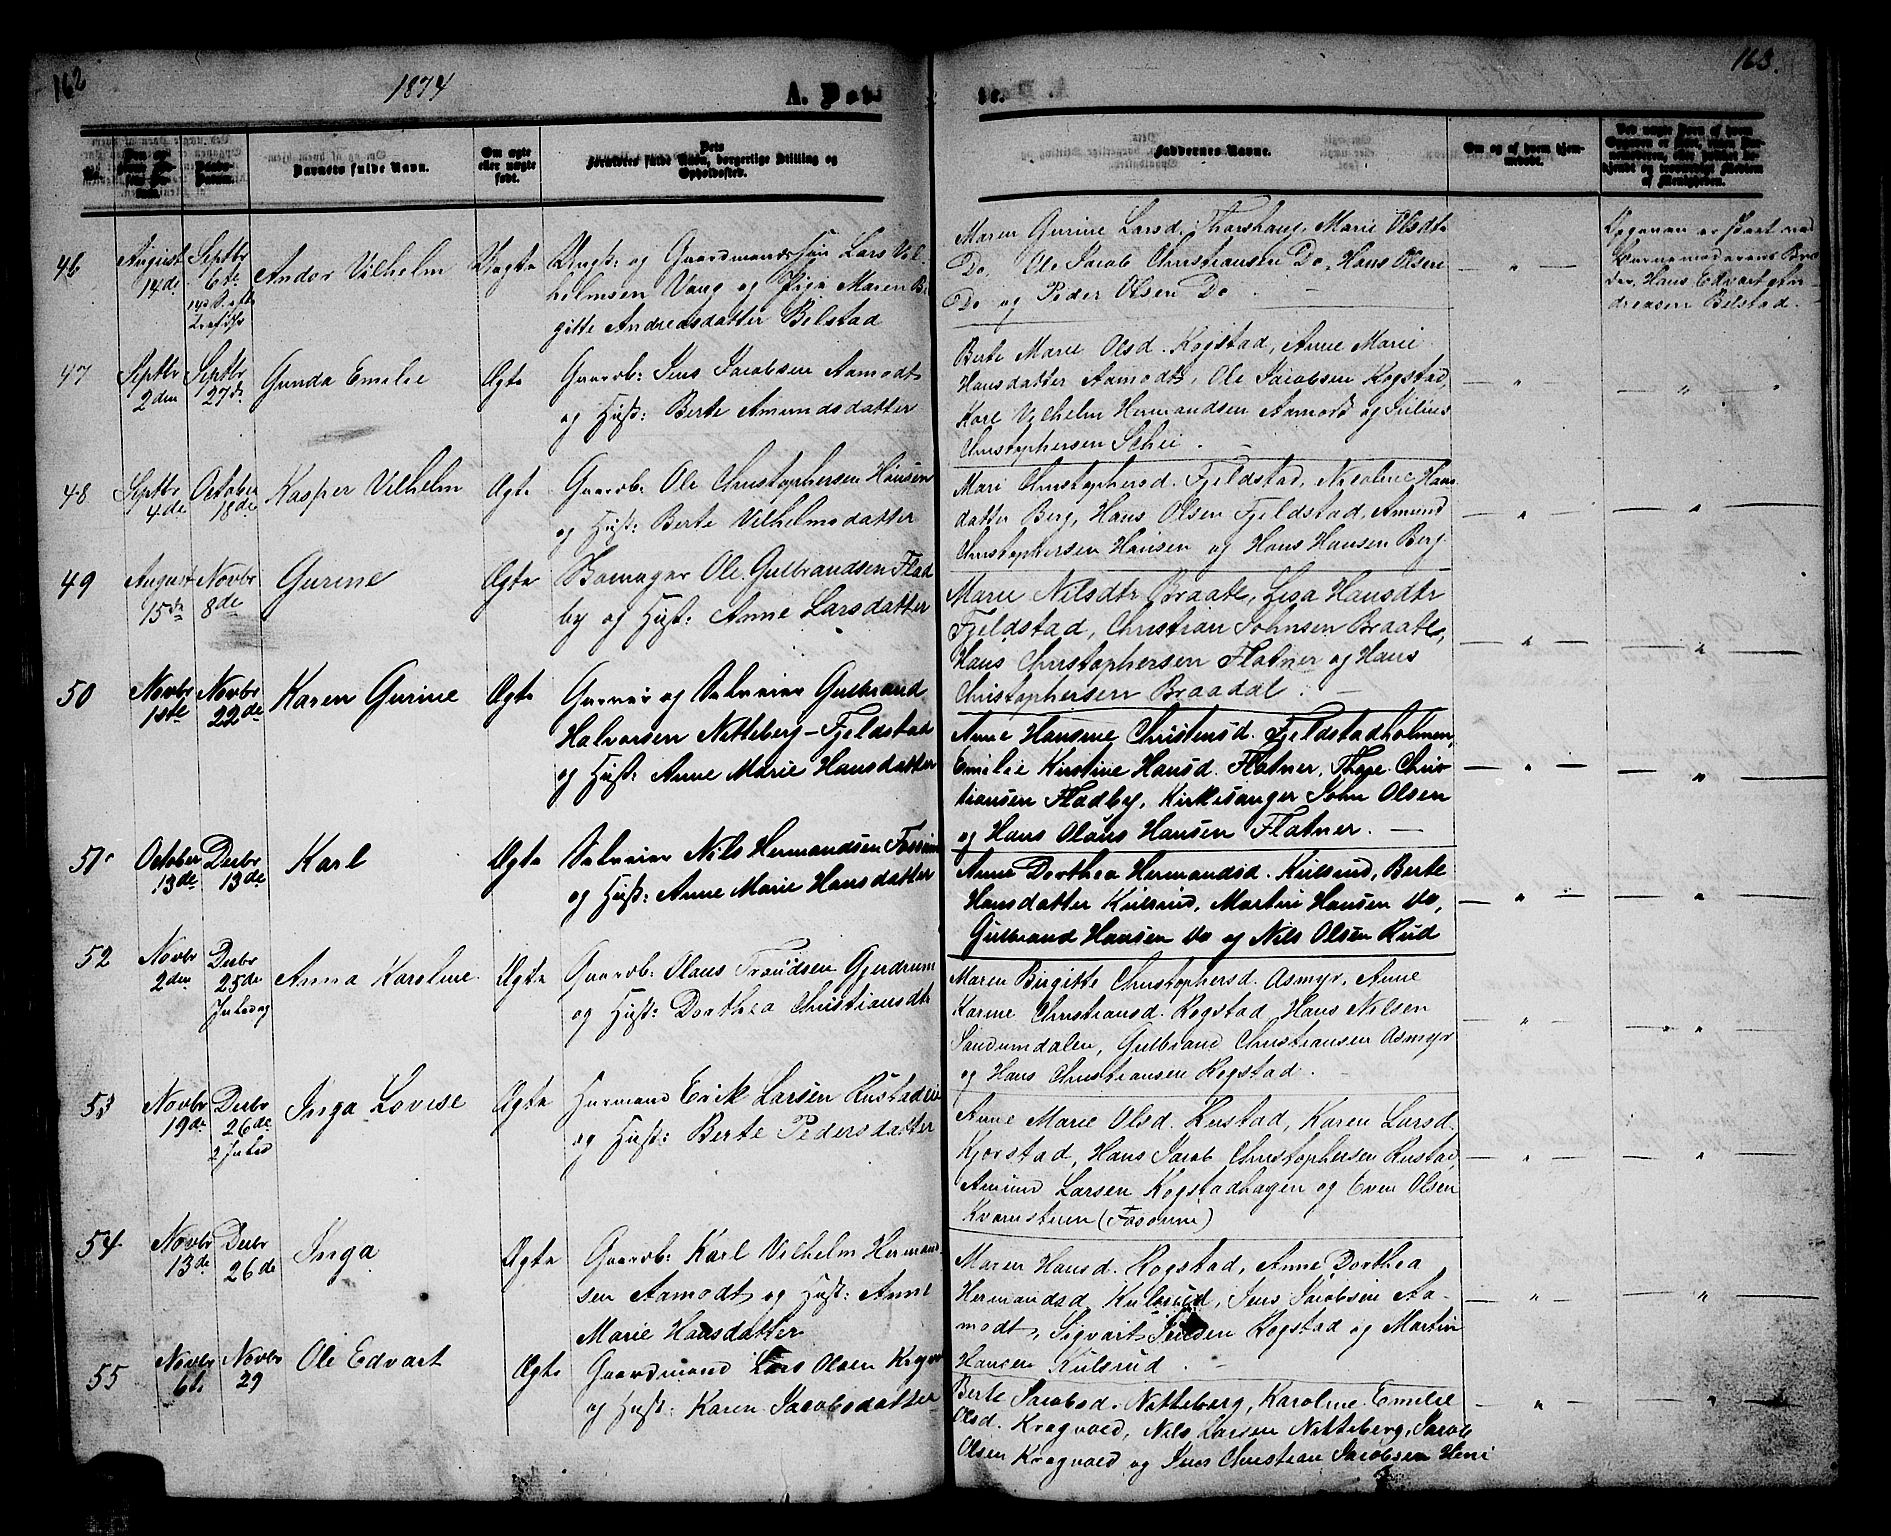 162
1874
A. Døb-
te.
163.
No.
Barnets fulde Navn.
Om ægte eller uægte født.
Forældres fulde Navn, borgerlige Stilling og Opholdssted.
Faddernes Navne.
Om og af hvem hjemmedøbt.
46
August
14de
Septbr
6te
Andor Vilhelm
Uægte
Ungk: og Gaardmandssøn Lars Vil-
helmsen Vang og Pige Maren Bi-
gitte Andreasdatter Bilstad
Maren Gurine Larsd. Thorshaug, Marie Olsdtr
Do, Ole Jacob Christiansen Do, Hans Olsen
Do og Peder Olsen Do.
Opgaven er skeet ved
Barnemoderens Bro-
der, Hans Edvart An-
dreasen Bilstad.
47
Septbr
2den
Septbr
27de
Gunda Emilie
Ægte
Gaardb: Jens Jacobsen Aamodt
og Hust: Berte Amundsdatter
Berte Marie Olsd. Kogstad, Anne Marie
Hansdatter Aamodt, Ole Jacobsen Kogstad,
Karl Vilhelm Hermandsen Aamodt og Julius
Christophersen Schei.
48
Septbr
4de
October
18de
Kasper Vilhelm
Ægte
Gaardb: Ole Christophersen Hansen
og Hust: Berte Vilhelmsdatter
Mari Christophersd. Fjeldstad, Nicoline Hans-
datter Berg, Hans Olsen Fjeldstad, Amund
Christophersen Hansen og Hans Hansen Berg
49
August
15de
Novbr
8de
Gurine
Ægte
Ole Gulbrandsen Flad-
by og Hust: Anne Larsdatter
Marie Nilsdtr Braate, Lisa Hansdtr
Fjeldstad, Christian Johnsen Braate,
Hans Christophersen Flatner og Hans
Christophersen Braadal.
50
Novbr
1ste
Novbr
22de
Karen Gurine
Ægte
Garver og Selveier Gulbrand
Halvorsen Nitteberg-Fjeldstad
og Hust: Anne Marie Hansdatter
Anne Hansine Christensd. Fjeldstadholmen,
Emilie Kirstine Hansd. Flatner, Thore Chris-
tiansen Fladby, Kirkesanger John Olsen
og Hans Olaus Hansen Flatner.
51
October
13de
Decbr
13de
Karl
Ægte
Selveier Nils Hermandsen
og Hust: Anne Marie Hansdatter
Anne Dorthea Hermandsd. Kulsrud, Berte
Hansdatter Kulsrud, Martin Hansen Do,
Gulbrand Hansen Do og Nils Olsen Rud
52
Novbr
2den
Decbr
25de
Juledag
Anna Karoline
Ægte
Gaardb: Olaus Trondsen Gjerdrum
og Hust: Dorthea Christiansdtr
Maren Birgitte Christophersd. Asmyr, Anne
Karine Christiansd. Kogstad, Hans Nilsen
Sandumdalen, Gulbrand Christiansen Asmyr
og Hans Christiansen Kogstad.
53
Novbr
19de
Decbr
26de
2 Juled
Inga Lovise
Ægte
Husmand Erik Larsen Rustadeie
og Hust: Berte Pedersdatter
Anne Marie Olsd. Rustad, Karen Larsd.
Kjorstad, Hans Jacob Christophersen Rustad,
Amund Larsen Kogstadhagen og Even Olsen
54
Novbr
13de
Decbr
26de
Inga
Ægte
Gaardb: Karl Vilhelm Hermand-
sen Aamodt og Hust: Anne
Marie Hansdatter
Maren Hansd. Kogstad, Anne Dorthea
Hermandsd Kulsrud, Jens Jacobsen Aa-
modt, Sigvart Kogstad og Martin
Hansen Kulsrud.
55
Novbr
6te
Novbr
29
Ole Edvart
Ægte
Gaardmand Lars Olsen
og Hust: Karen Jacobsdatter
Berte Jacobsd. Nitteberg, Karoline Emilie
Olsd. Kragvold, Nils Larsen Nitteberg, Jacob
Olsen Kragvold og Jens Christian Jacobsen